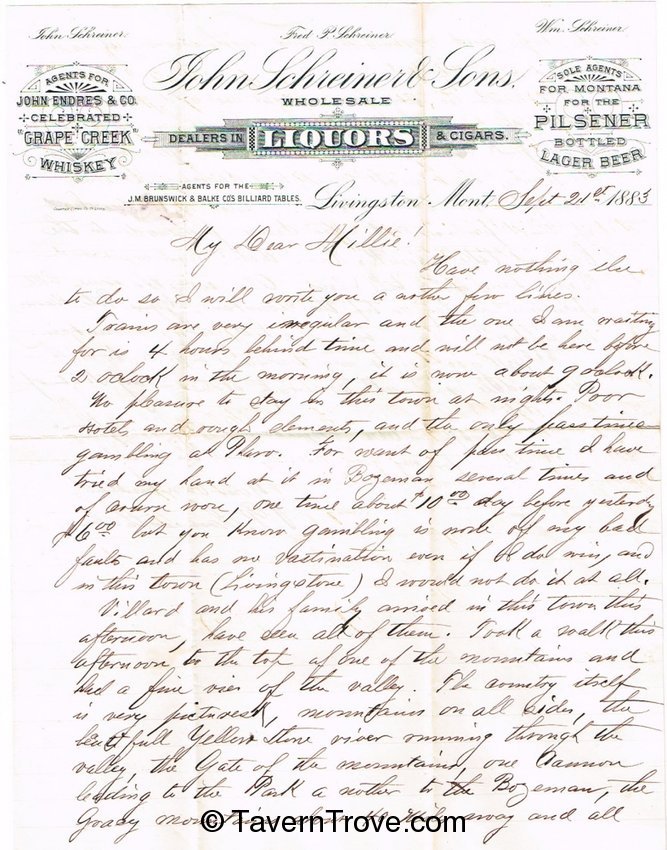 John Schreiner
Fred P. Schreiner
Wm. Schreiner
John Schreiner & Sons.
WHOLESALE
DEALERS IN LIQUORS & CIGARS.
AGENTS FOR
JOHN ENDRES & CO.
CELEBRATED
"GRAPE CREEK"
WHISKEY
SOLE AGENTS
FOR MONTANA
FOR THE
PILSENER
BOTTLED
LAGER BEER
AGENTS FOR THE
J.M. BRUNSWICK & BALKE CO'S BILLIARD TABLES.
Livingston Mont. Sept 21st 1883
My Dear Millie!
Have nothing else
to do so I will write you a nother few lines.
Trains are very irregular and the one I am waiting
for is 4 hours behind time and will not be here before
2 oclock in the morning, it is now about 9 oclock.
No pleasure to stay in this town at nights. Poor
Hotels and rough elements, and the only pass time
gambling at Pharo. For want of pass time I have
tried my hand at it in Bozeman several times and
of course wone, one time about $10 00 day before yesterday
$6 00 but you know gambling is none of my bad
faults and has no vastination even if I do win, and
in this town (Livingstone) I would not do it at all.
Villard and his family arrived in this town this
afternoon, have seen all of them. Took a walk this
afternoon, to the top of one of the mountains and
had a fine view of the valley. The country itself
is very picturesk, mountains on all sides, the
beautfull Yellow Stone river running through the
valley, the Gate of the mountains, one Cannon
leading to the Park a nother to the Bozeman, the
mountains away and all
© TavernTrove.com